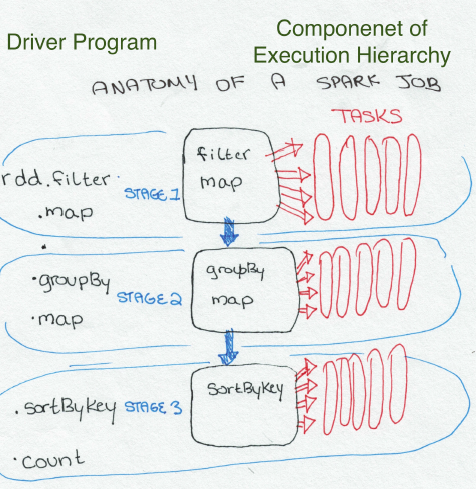 Driver Program
Componenet of
Execution Hierarchy
ANATOMY OF A SPARK JOB
TASKS
rdd.filter
.map
STAGE 1
filter
map
.groupBy
.map
STAGE 2
groupBy
map
.sortByKey
STAGE 3
sortByKey
.count